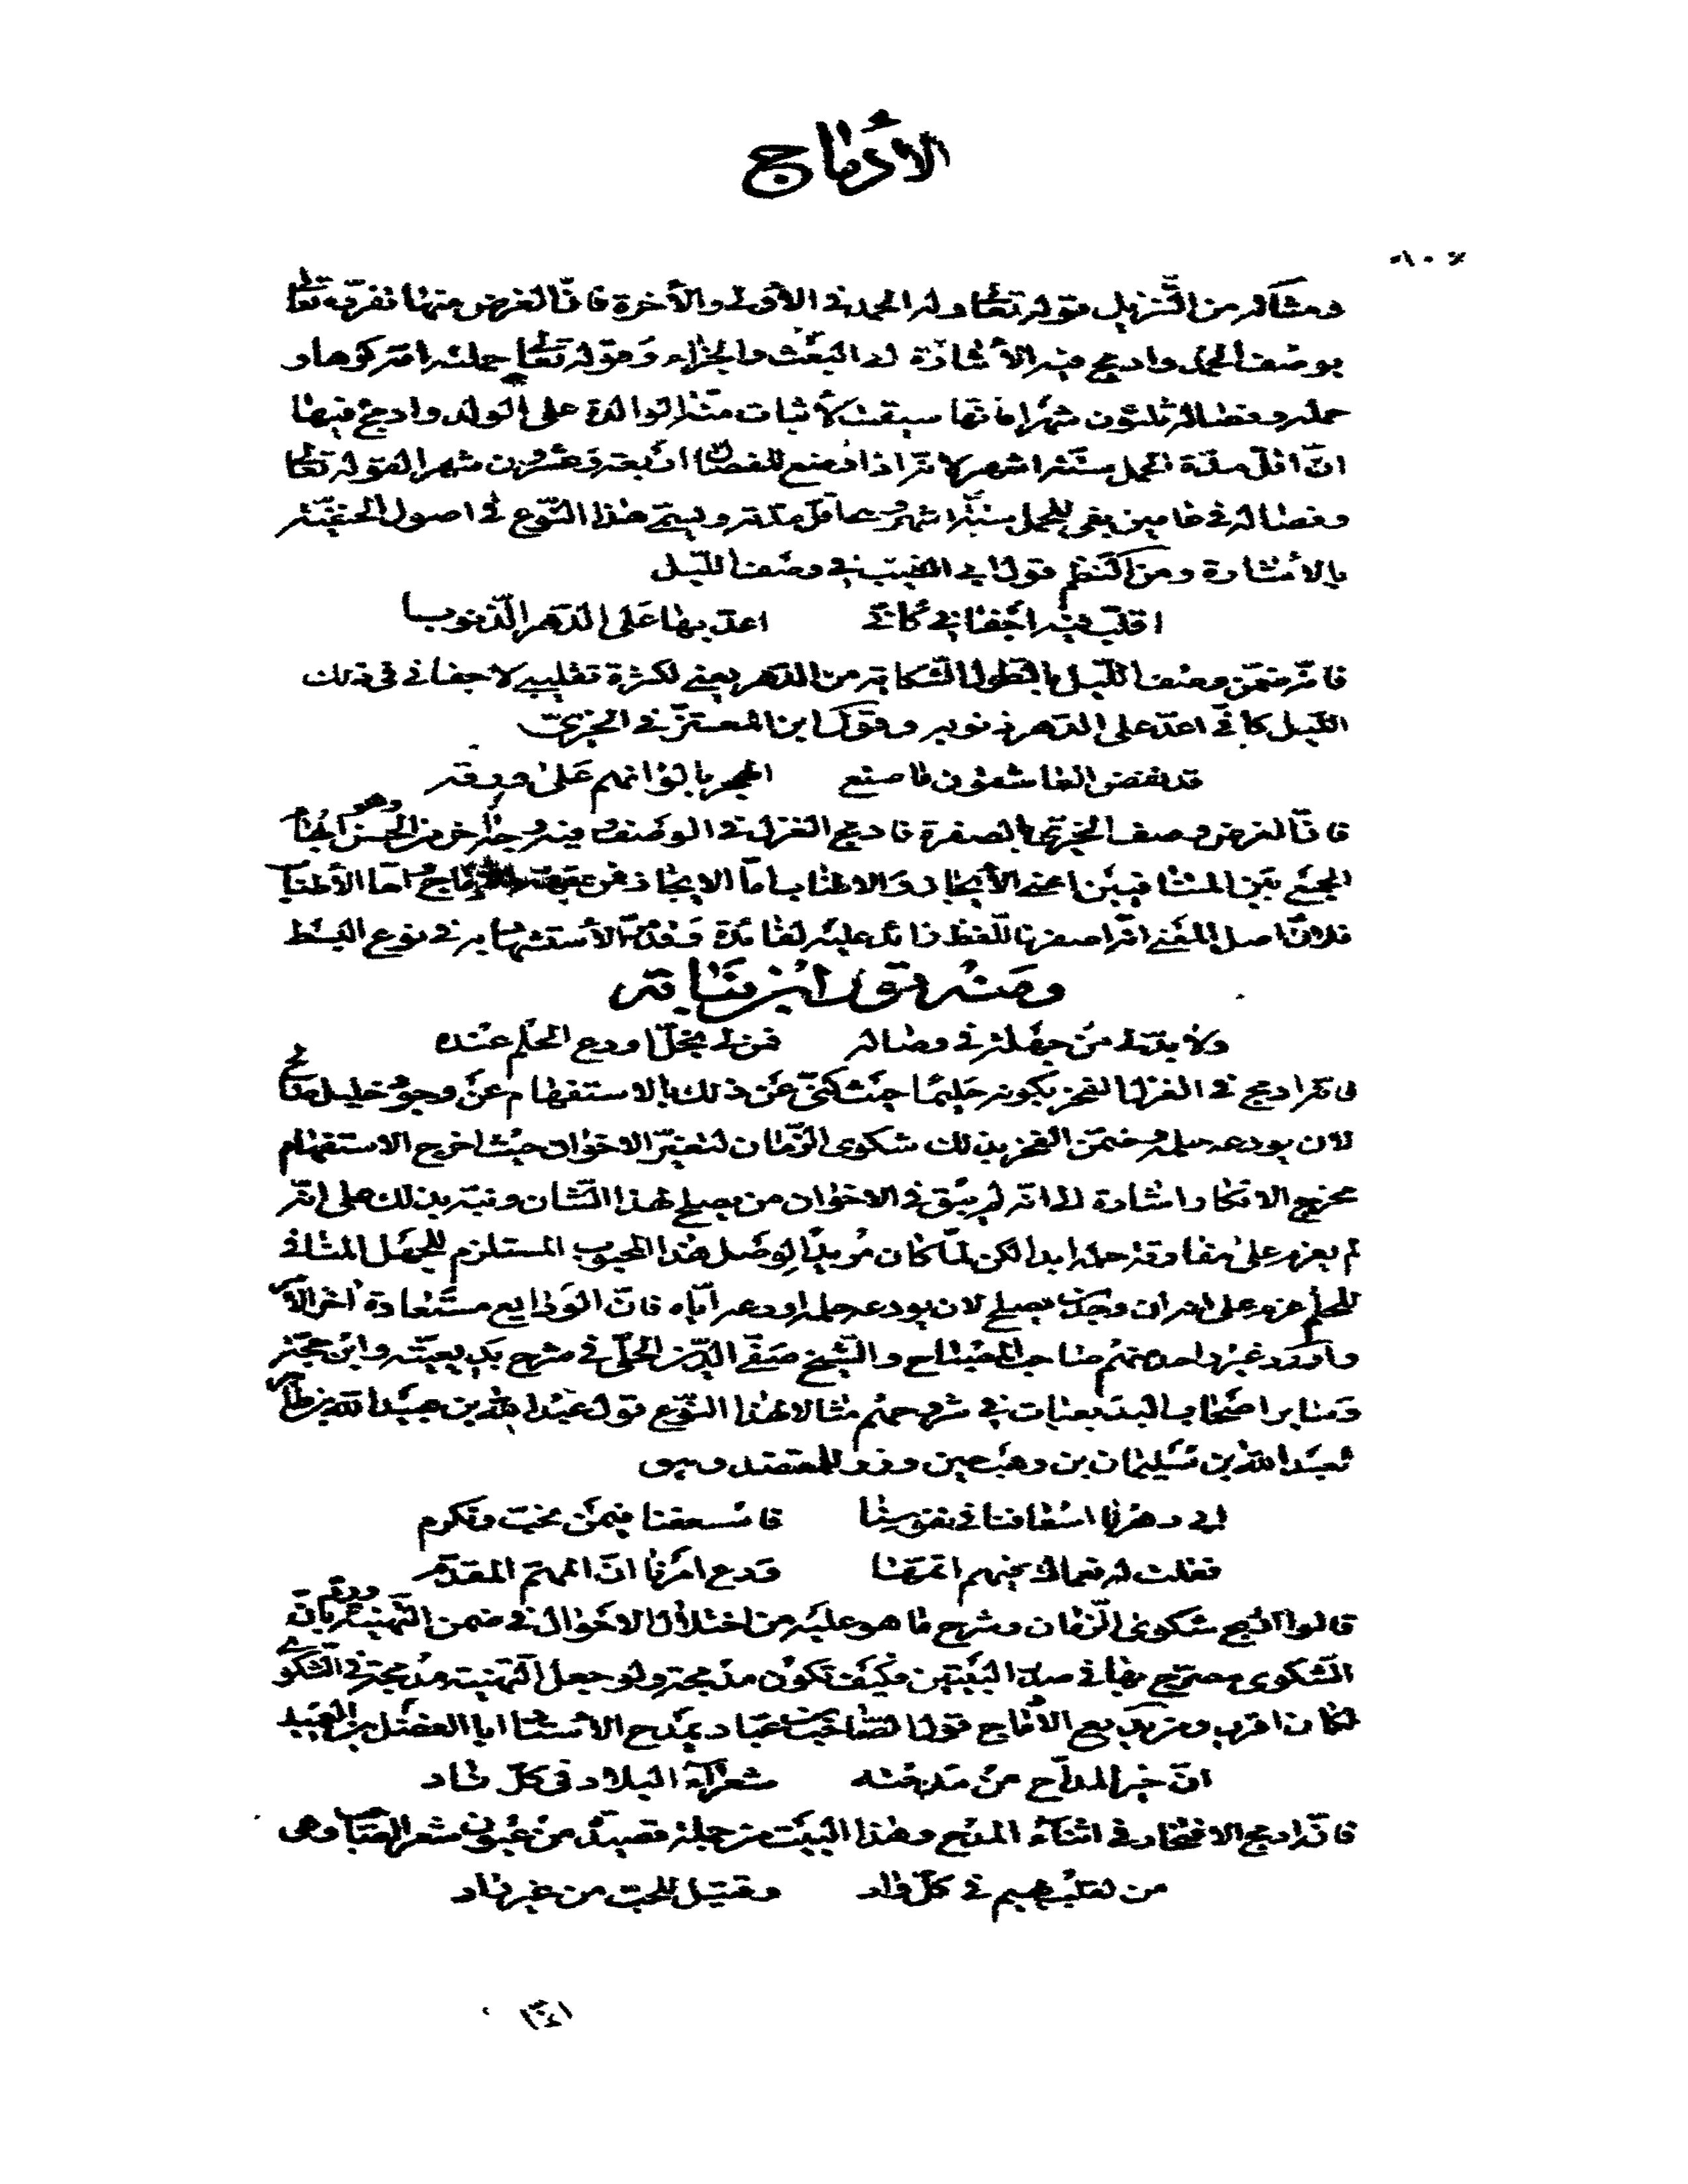 الأدماج
ومثاله من التنزيل قوله تعالى وله الحمد في الأولى والأخرة فان الغرض منها تفرده تعالى
بوصف الحمد وادمج فيه الأشارة الى البعث والجزاء وقوله تعالى حملته امه كرها و
حمله وفصاله ثلثون شهرا فانها سيقت لأثبات منة الوالدة على الولد وادمج فيها
ان اقل مدة الحمل ستة اشهر لانه اذا وضع للفصال اربعة وعشرون شهرا لقوله تعالى
وفصاله في عامين بقى للحمل ستة اشهر وهى اقل مدته ويسمى هذا النوع في اصول الحنفية
بالأشارة ومن النظم قول ابي الطيب في وصف الليل
اقلب فيه اجفاني كاني اعد بها على الدهر الذنوبا
فانه ضمن وصف الليل بالطول الشكاية من الدهر يعني لكثرة تقليبي لاجفاني في ذلك
الليل كاني اعد على الدهر ذنوبه وقول ابن المعتز في الخيري
قد نفض العاشقون ما صنع الهجر بالوانهم على ورقه
فان الغرض وصف الخيري بالصفرة فادمج الغزل في الوصف وفيه وجه اخر من الحسن وهو ايهام
الجمع بين المتنافيين اعني الأيجاز والاطناب اما الايجاز فمن جهة الادماج واما الأطناب
فلان اصل المعنى انه اصفر فاللفظ زائد عليه لفائدة وقد مر الأستشهاد به في نوع البسط
ومنه قول ابن نباته
ولا بد لي من جهلة في وصاله فمن لي بخل اودع الحلم عنده
فانه ادمج في الغزل الفخر بكونه حليما حيث كنى عن ذلك بالاستفهام عن وجود خليل صالح
لان يودعه حلمه وضمن الفخر بذلك شكوى الزمان لتغير الاخوان حيث اخرج الاستفهام
مخرج الانكار اشارة الى انه لم يبق في الاخوان من يصلح لهذا الشان ونبه بذلك على انه
لم يعزم على مفارقة حلمه ابدا لكن لما كان مريدا لوصل هذا المحبوب المستلزم للجهل المنافى
للحلم عزم على انه ان وجد من يصلح لان يودعه حلمه اودعه اياه فان الودايع مستعادة اخر الأمر
واورد غير واحد منهم صاحب المصباح والشيخ صفي الدين الحلي في شرح بديعيته وابن حجة
وساير اصحاب البديعيات في شروحهم مثالا لهذا النوع قول عبد الله بن عبيد الله بن طاهر
لعبيد الله بن سليمان بن وهب حين وزر للمعتضد وهو
ابى دهرنا اسعافنا في نفوسنا فاسعفنا فيمن نحب ونكرم
فقلت له نعماك فيهم اتمها ودع امرنا ان المهم المقدم
قالوا ادمج شكوى الزمان وشرح ما هو عليه من اختلال الاحوال في ضمن التهنية ورد بان
الشكوى مصرح بها في صدر البيتين فكيف تكون مدمجة ولو جعل التهنية مدمجة في الشكوى
لكان اقرب ومن بديع الادماج قول الصاحب بن عباد يمدح الأستاذ ابا الفضل بن العميد
ان خير المداح من مدحته شعراء البلاد في كل ناد
فانه ادمج الافتخار في اثناء المدح وهذا البيت من جملة قصيدة من عيون شعر الصاحب وهى
من لقلب يهيم في كل واد وقتيل للحب من غير واد